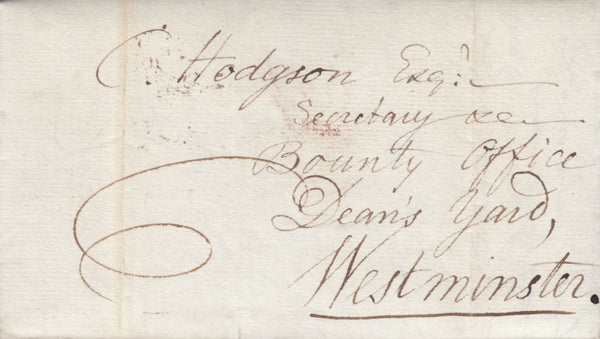 C. Hodgson Esqr.
Secretary &c
Bounty Office
Dean's Yard,
Westminster.